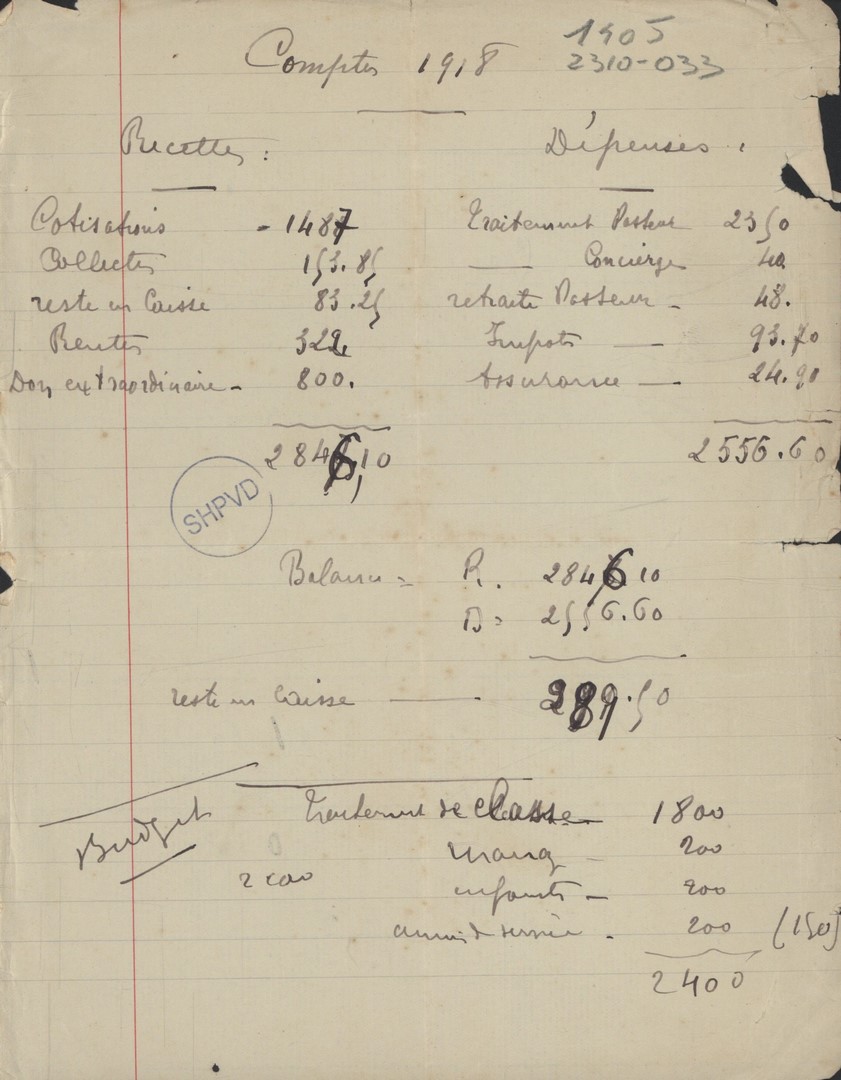 1905
Comptes 1918 2310-033
Recettes : Dépenses :
Cotisations - 1487 Traitement Pasteur 2350
Collectes 153.85 —— Concierge 40
reste en Caisse 83.25 retraite Pasteur - 48.
Rentes 322 Impots — 93.70
Don extraordinaire - 800. Assurance — 24.90
2846,10 2556.60
SHPVD
Balance = R. 2846.10
D = 2556.60
reste en Caisse —— 289.50
Budget Traitement de Classe 1800
200
2200 enfants - 200
année de service - 200 (150)
2400